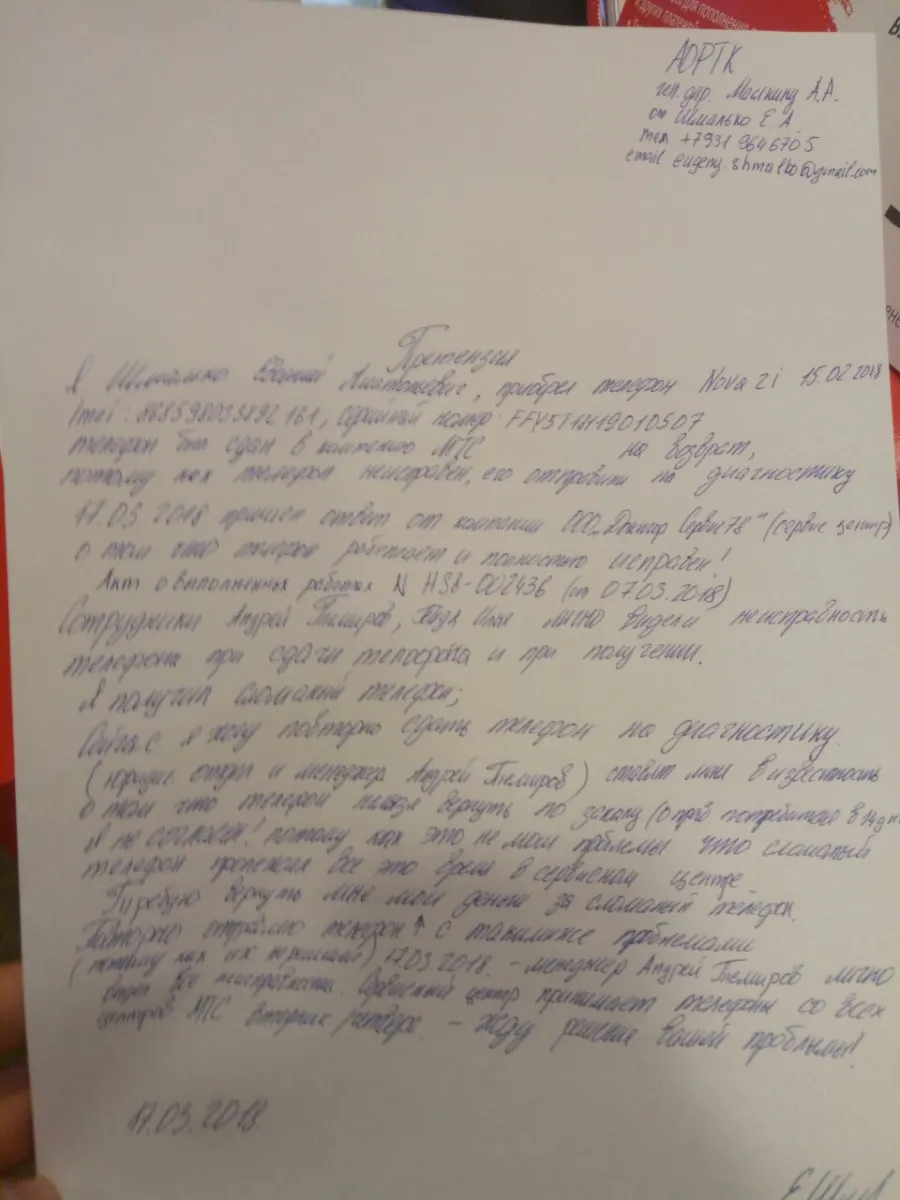 для пополнения
и других платежей
АОРТК
ген. дир. Малкину А.А.
от Шмалько Е.А.
тел +7931 9646705
email eugeny.shmalko@gmail.com
Претензия
Я Шмалько Евгений Анатольевич, приобрел телефон Nova 2i 15.02 2018
Imei: 868598033892161, Серийный номер: FFY5T18119010507
телефон был сдан в компанию МТС на возврат,
потому как телефон неисправен, его отправили на диагностику
17.03 2018 пришел ответ от компании ООО „Доктор Сервис78" (сервис центр)
о том что телефон работает и полностью исправен!
Акт о выполненных работах N HS8-002436 (от 07.03.2018)
Сотрудники Андрей Тюмиров, Илья лично видели неисправность
телефона при сдачи телефона и при получении.
Я получил сломаный телефон;
Сейчас я хочу повторно сдать телефон на диагностику.
(юридич. отдел и менеджер Андрей Тюмиров) ставят мне в известность
о том что телефон нельзя вернуть по закону (о прав потребителя в 14 дн
Я не согласен! потому как это не мои проблемы что сломаный
телефон пролежал все это время в сервисном центре
Требую вернуть мне мои деньги за сломаный телефон.
Повторно отправлю телефон с такими же проблемами
(потому как их не решили) 17.03 2018. - менеджер Андрей Тюмиров лично
видел все неисправности. Сервисный центр принимает телефоны со всех
центров МТС вторник/четверг. - Жду решения вашей проблемы!
17.03.2018